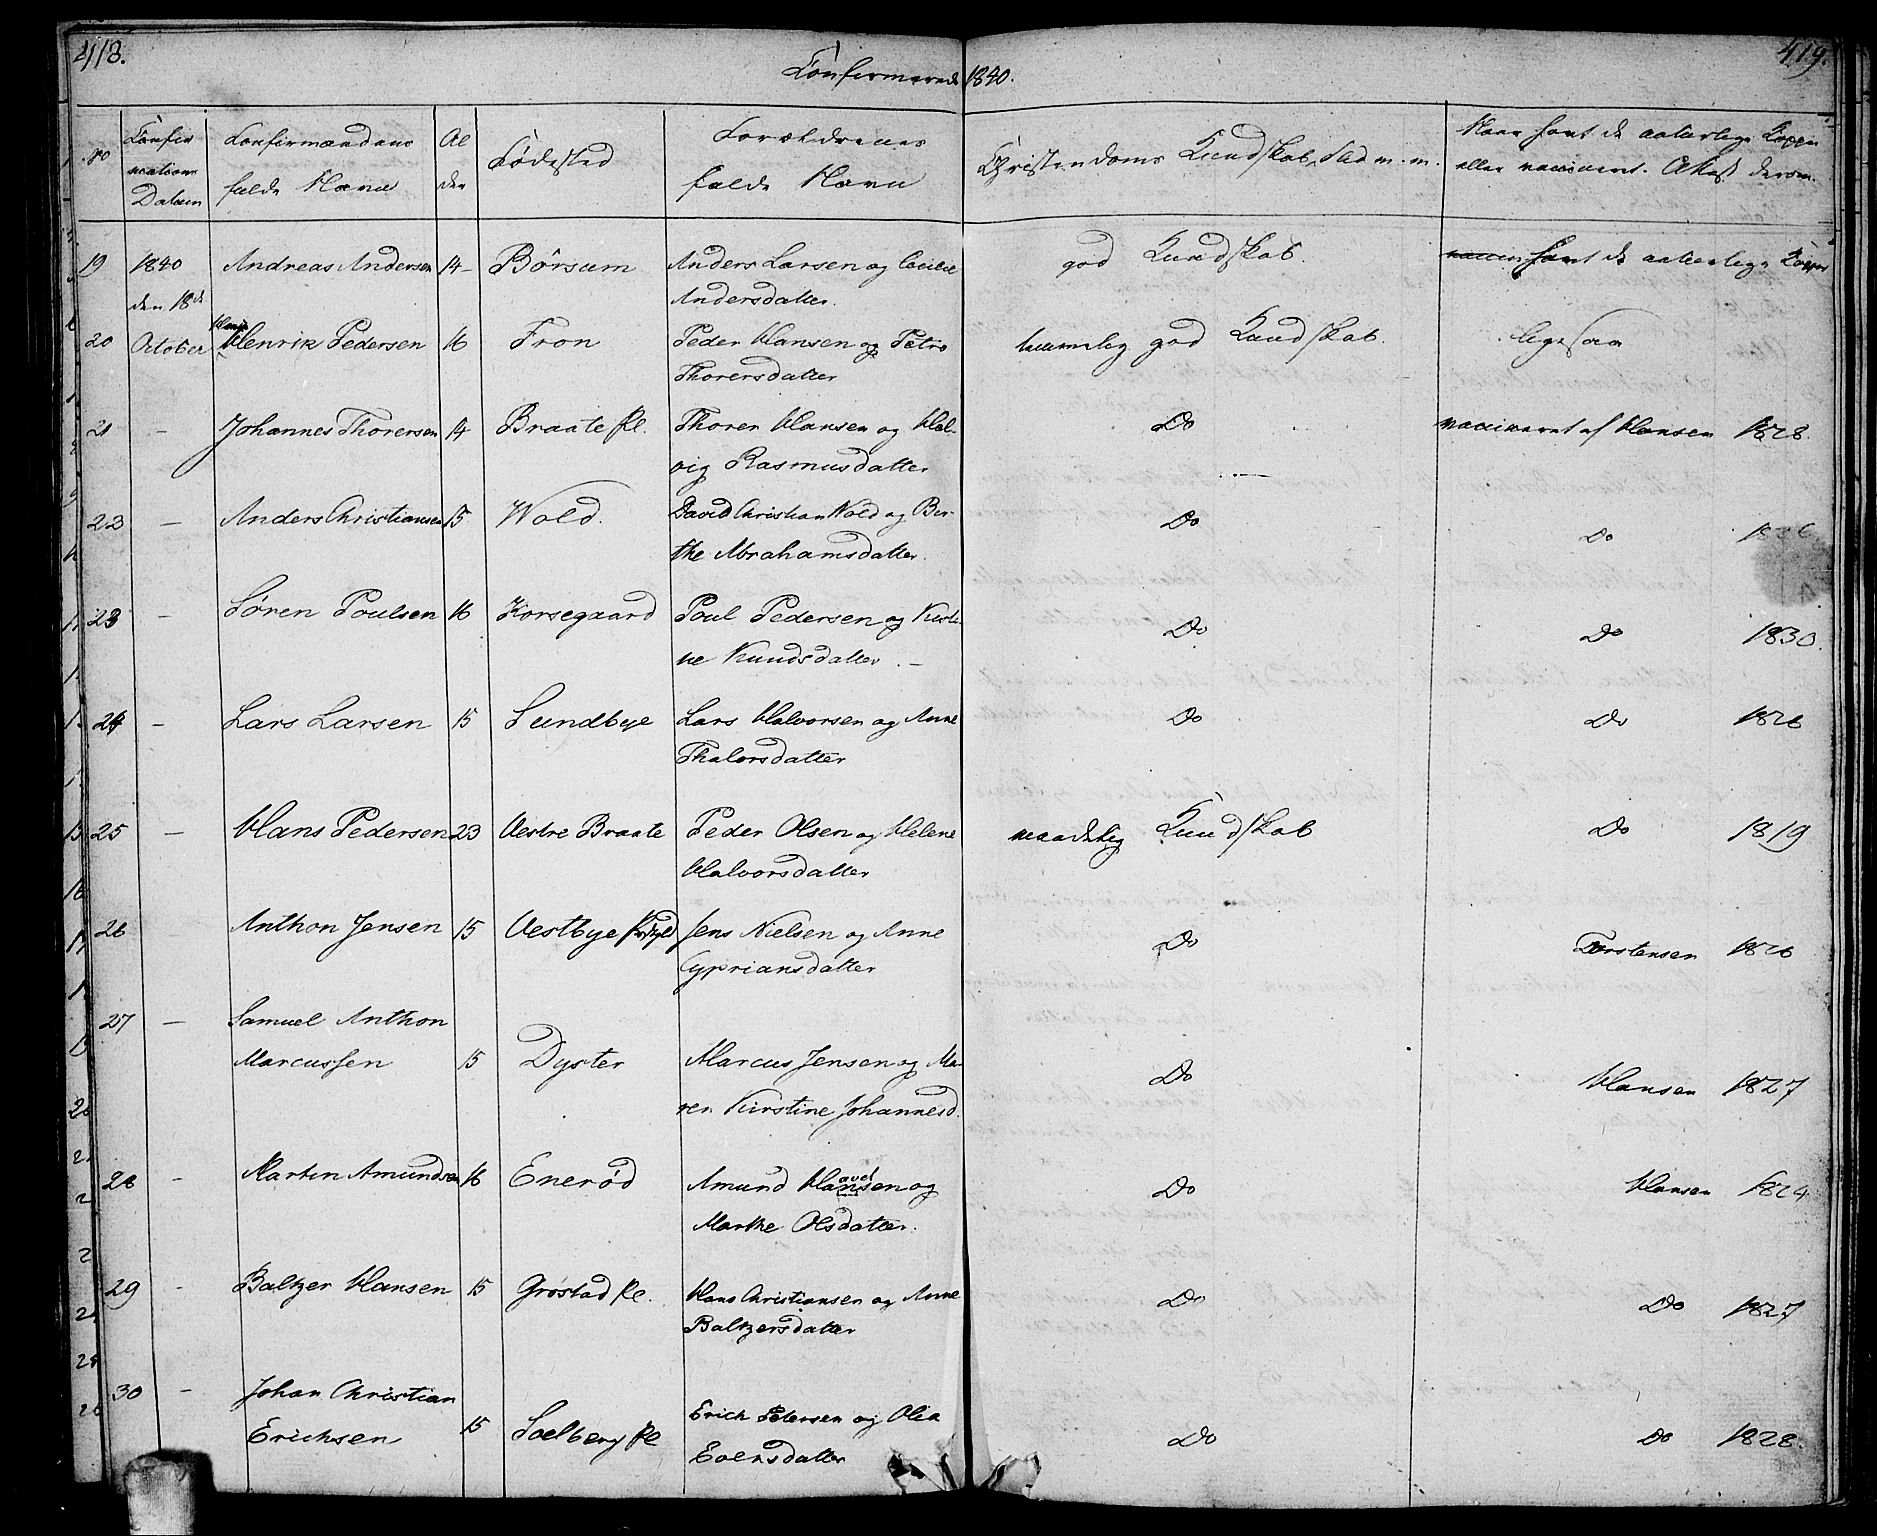 418.
Confirmerede 1840.
419.
No
Confir
mations
Datum
Confirmandens
fulde Navn
Al
der
Fødested
Forældrenes
fulde Navn
Christendoms Kundskab, Flid m. m.
Naar havt de naturlige Kopper
eller vaccineret. Attest derom.
19 1840 Andreas Andersen 14 Børsum Anders Larsen og Cecilie god Kundskab. havt de naturlige Kopper
den 18de Andersdatter.
20 October Henrik Pedersen 16 Fron Peder Hansen og Petro temmelig god Kundskab. ligesaa
Thorersdatter
21 - Johannes Thorersen 14 Braate Pl. Thorer Hansen og Hel- Do vaccineret af Hansen 1828.
vig Rasmusdatter
22 - Anders Christiansen 15 Wold. David Christian Wold og Ber- Do Do 1826
the Abrahamsdatter.
23 - Søren Poulsen 16 Korsegaard Poul Pedersen og Kirsti- Do Do 1830.
ne Knudsdatter. -
24 - Lars Larsen 15 Sundbye Lars Halvorsen og Anne Do Do 1826
Thalorsdatter
25 - Hans Pedersen 23 Vestre Braate Peder Olsen og Helene maadelig Kundskab Do 1819
Halvorsdatter
26 Anthon Jensen 15 Vestbye Jens Nielsen og Anne Do Torstensen 1826
Cypriansdatter
27 - Samuel Anthon
Marcussen 15 Dyster Marcus Jensen og Ma- Do Hansen 1827
ren Kirstine Johannesd.
28 - Martin Amundsen 16 Enerød Amund Hansen og Do Hansen 1824
Marthe Olsdatter.
29 - Baltzer Hansen 15 Grøstad Pl. Hans Christiansen og Anne Do Do 1827
Baltzersdatter
30 - Johan Christian
Erichsen 15 Solberg Pl Erich Petersen og Olea Do Do 1828.
Evensdatter